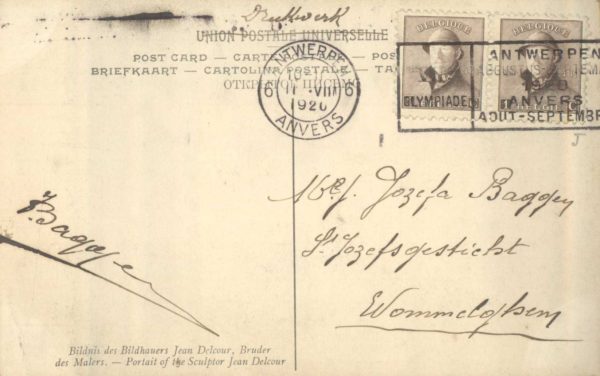 Drukwerk
UNION POSTALE UNIVERSELLE
POST CARD — CARTE
BRIEFKAART — CARTOLINA POSTALE
BELGIQUE BELGIQUE
ANTWERPEN 6
VIII
1920
6 ANVERS
ANTWERPEN
1920
OLYMPIADE ANVERS
AOUT-SEPTEMBRE
J
Mej. Jozefa Baggen
St Jozefsgesticht
Wommelghem
Baggen
Bildnis des Bildhauers Jean Delcour, Bruder
des Malers. — Portait of the Sculptor Jean Delcour